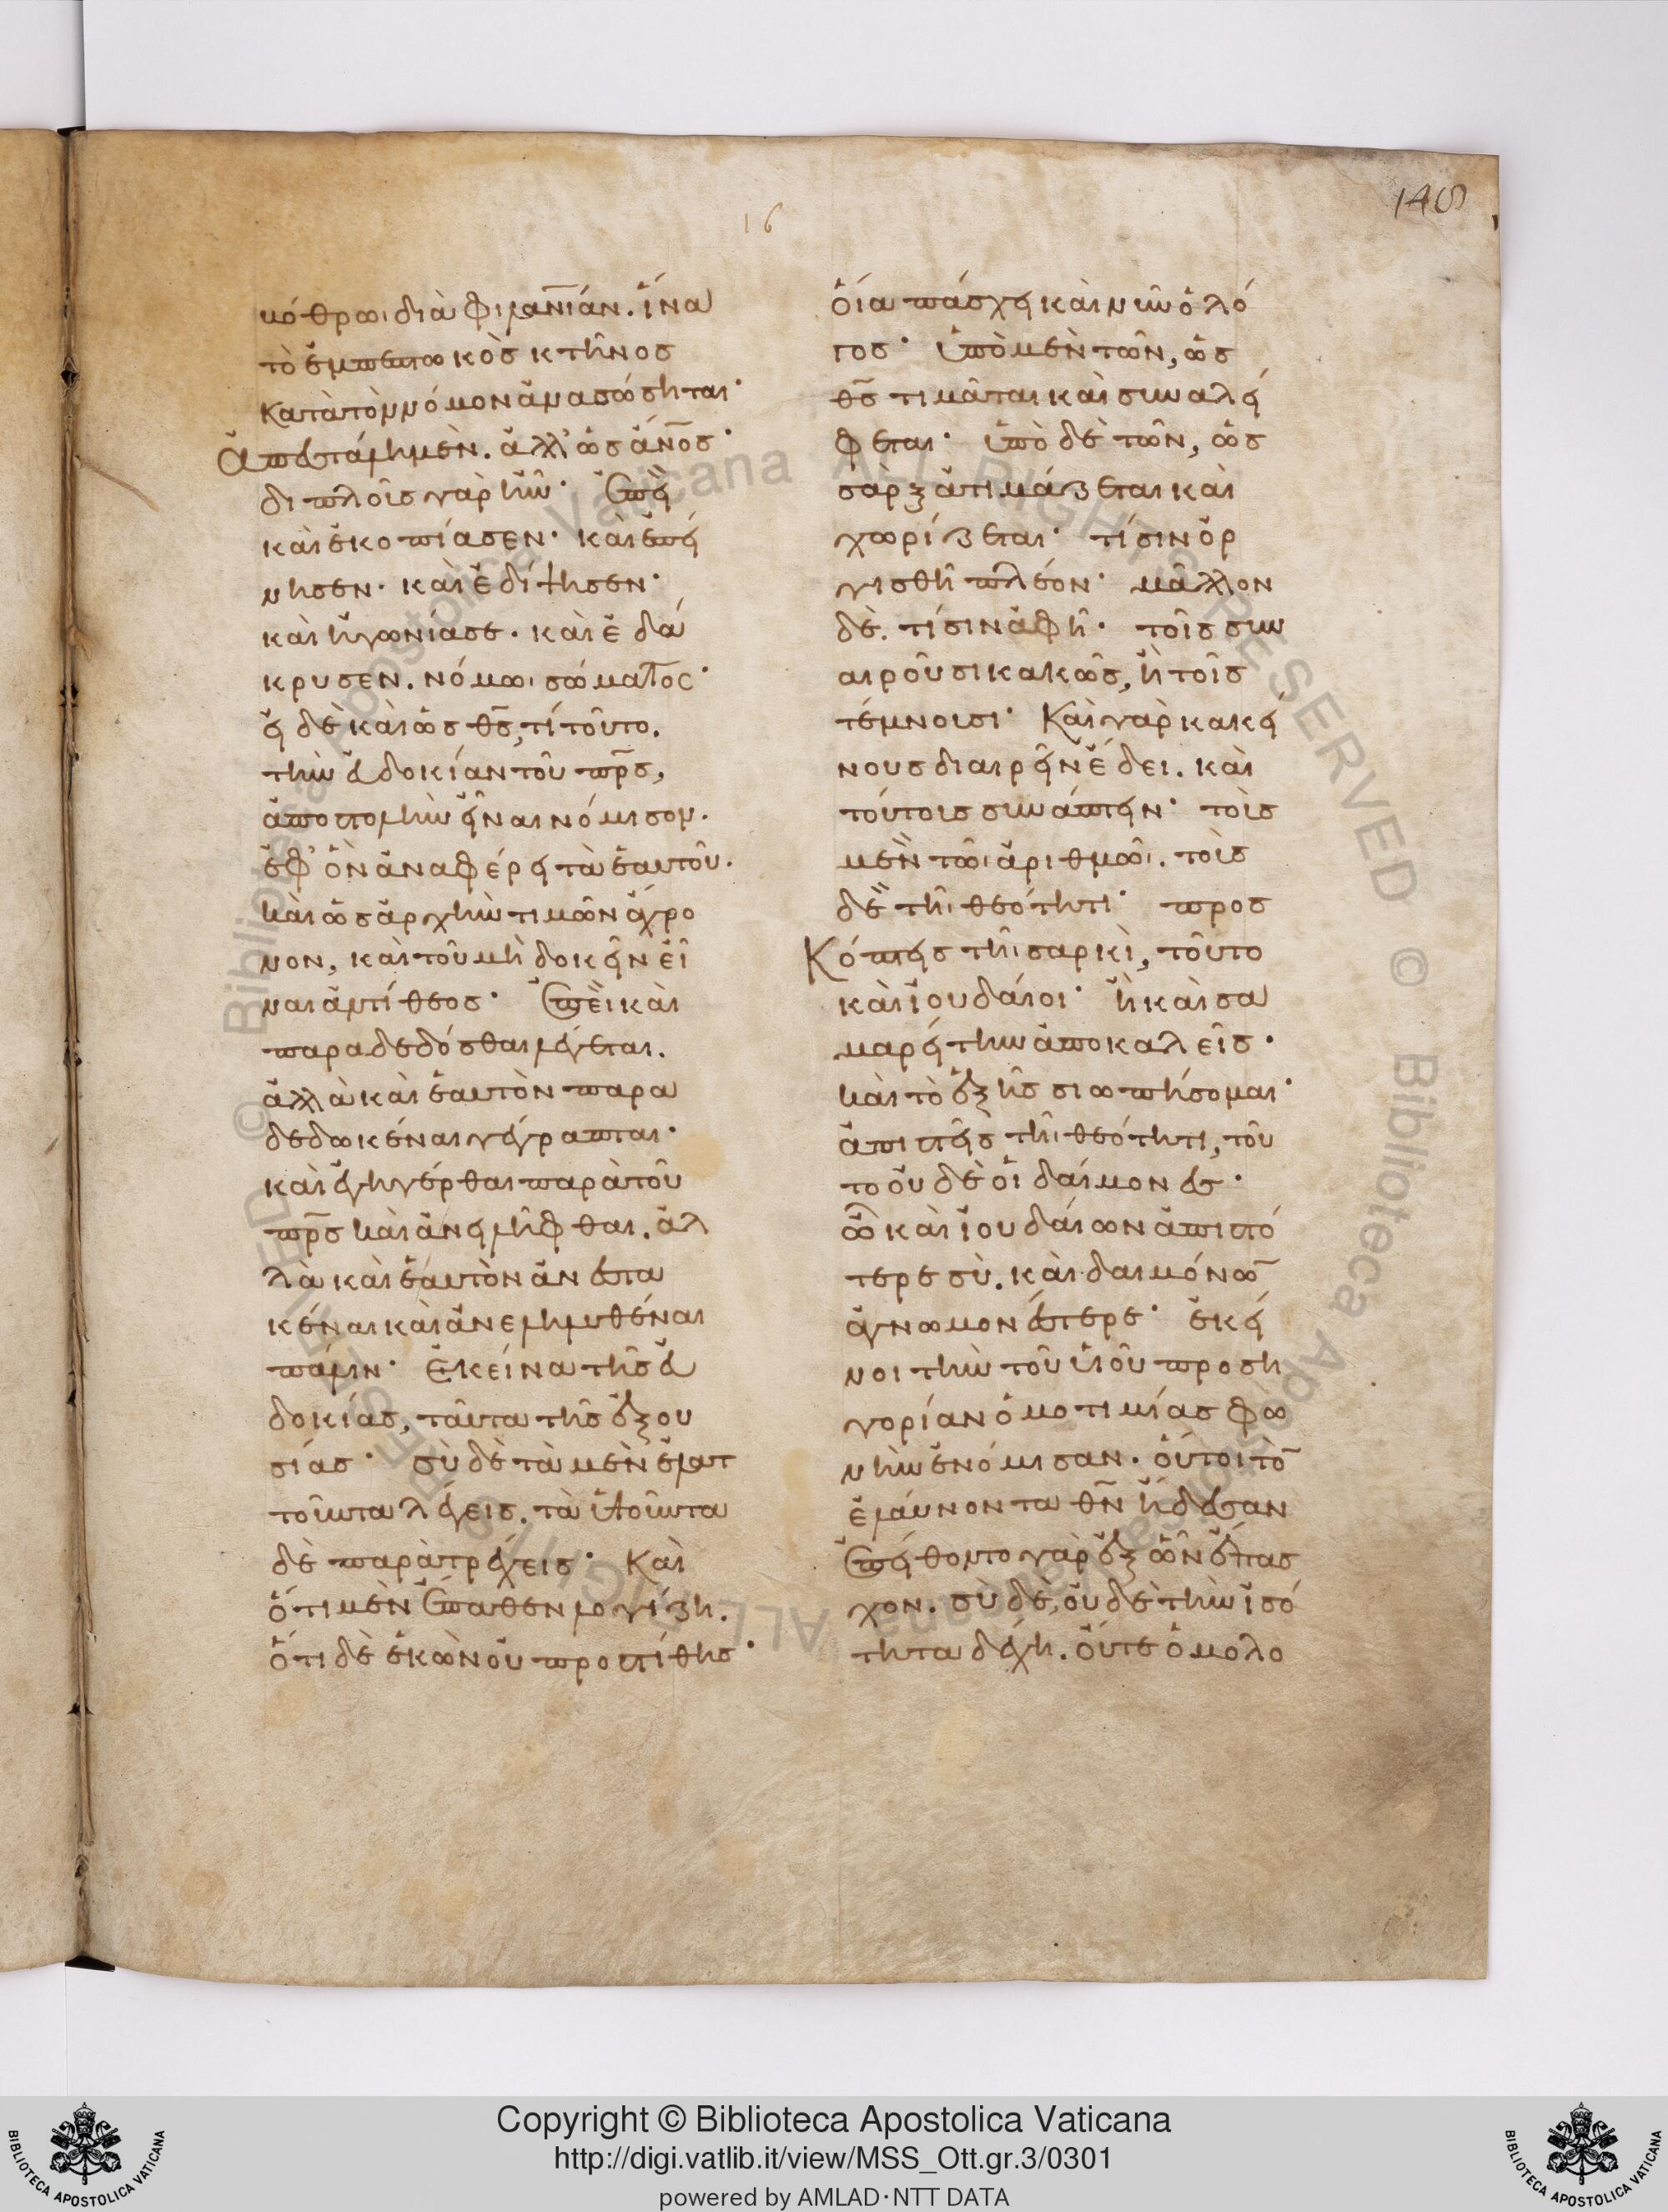 16
148
κόθρωι διὰ φιλανίαν. ἵνα
τὸ ἐμπεπτωκὸς κτῆνος
κατὰ τὸν νόμον ἀνασώσηται·
ἀπεστάλη μὲν. ἀλλ' ὡς ἄνος·
διπλοῖς γὰρ ἦν· ἐπεὶ
καὶ ἐκοπίασεν· καὶ ἐπεί
νησεν· καὶ ἐδίψησεν·
καὶ ἠγωνίασε· καὶ ἐδά
κρυσεν. νόμωι σώματος·
εἰ δὲ καὶ ὡς θς, τί τοῦτο.
τὴν εὐδοκίαν τοῦ πρς,
ἀποστολὴν εἶναι νόμισον.
ἐφ' ὃν ἀναφέρει τὰ ἑαυτοῦ.
καὶ ὡς ἀρχὴν τιμῶν ἄχρο
νον, καὶ τοῦ μὴ δοκεῖν εἶ
ναι ἀντίθεος· ἐπεὶ καὶ
παραδεδόσθαι λέγεται.
ἀλλὰ καὶ ἑαυτὸν παρα
δεδωκέναι γέγραπται·
καὶ ἐγηγέρθαι παρὰ τοῦ
πρς καὶ ἀνειλῆφθαι. ἀλ
λὰ καὶ ἑαυτὸν ἀνεστα
κέναι καὶ ἀνεληλυθέναι
πάλιν· ἐκείνα τῆς εὐ
δοκίας, ταῦτα τῆς ἐξου
σίας· σὺ δὲ τὰ μὲν ἐλατ
τοῦντα λέγεις. τὰ ὑψοῦντα
δὲ παρατρέχεις· Καὶ
ὅτι μὲν ἔπαθεν λογίζη.
ὅτι δὲ ἑκὼν οὐ προστίθης·
οἷα πάσχει καὶ νῦν ὁ λό
γος· ὑπὸ μὲν τῶν, ὡς
θς τιμᾶται καὶ συναλεί
φεται· ὑπὸ δὲ τῶν, ὡς
σὰρξ ἀτιμάζεται καὶ
χωρίζεται· τίσιν ὀρ
γισθῆ πλέον· μᾶλλον
δὲ. τίσιν ἀφῆ· τοῖς συν
αιροῦσι κακῶς, ἢ τοῖς
τέμνουσι· Καὶ γὰρ κακεί
νους διαιρεῖν ἔδει. καὶ
τούτοις συνάπτειν· τοῖς
μὲν τῶι ἀριθμῶι. τοῖς
δὲ τῆι θεότητι· προσ
κόπτεις τῆι σαρκὶ, τοῦτο
καὶ ἰουδαίοι· ἢ καὶ σα
μαρείτην ἀποκαλεῖς·
καὶ τὸ ἑξῆς σιωπήσομαι·
ἀπιστεῖς τῆι θεότητι, τοῦ
το οὐδὲ οἱ δαίμονες·
ὦ καὶ ἰουδαίων ἀπιστό
τερε σὺ. καὶ δαιμόνω
ἀγνωμονέστερε· ἐκεῖ
νοι τὴν τοῦ υἱοῦ προση
γορίαν ὁμοτιμίας φω
νὴν ἐνόμισαν. οὗτοι τὸ
ἐλαύνοντα θν ἤδεσαν
ἐπείθοντο γὰρ ἐξ ὧν ἔπασ
χον. σὺ δὲ, οὐδὲ τὴν ἰσό
τητα δέχη. οὔτε ὁμολο
Copyright © Biblioteca Apostolica Vaticana
http://digi.vatlib.it/view/MSS_Ott.gr.3/0301
powered by AMLAD·NTT DATA
BIBLIOTECA APOSTOLICA VATICANA
BIBLIOTECA APOSTOLICA VATICANA